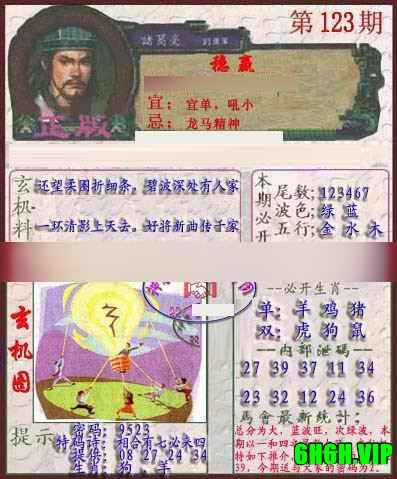 第123期
諸葛亮
稳赢
宜：宜单，吼小
忌：龙马精神
正版
玄机料
还望柔闺折细条。碧波深处有人家
一环清影上天去。好将新曲传于家
本期必开
尾数：123467
波色：绿 蓝
五行：金 水 木
必开生肖
单：羊 鸡 猪
双：虎 狗 鼠
内部泄码
27 39 37 11 34
23 32 12 24 36
馬會最新統計：
总分为大，蓝波旺，次绿波，本
39，今期送与大家的密码为2.
玄机图
提示
密码：9523
特码诗：相合有七必来四
提供：08 27 24 34
生肖：狗、羊
6HGH.VIP